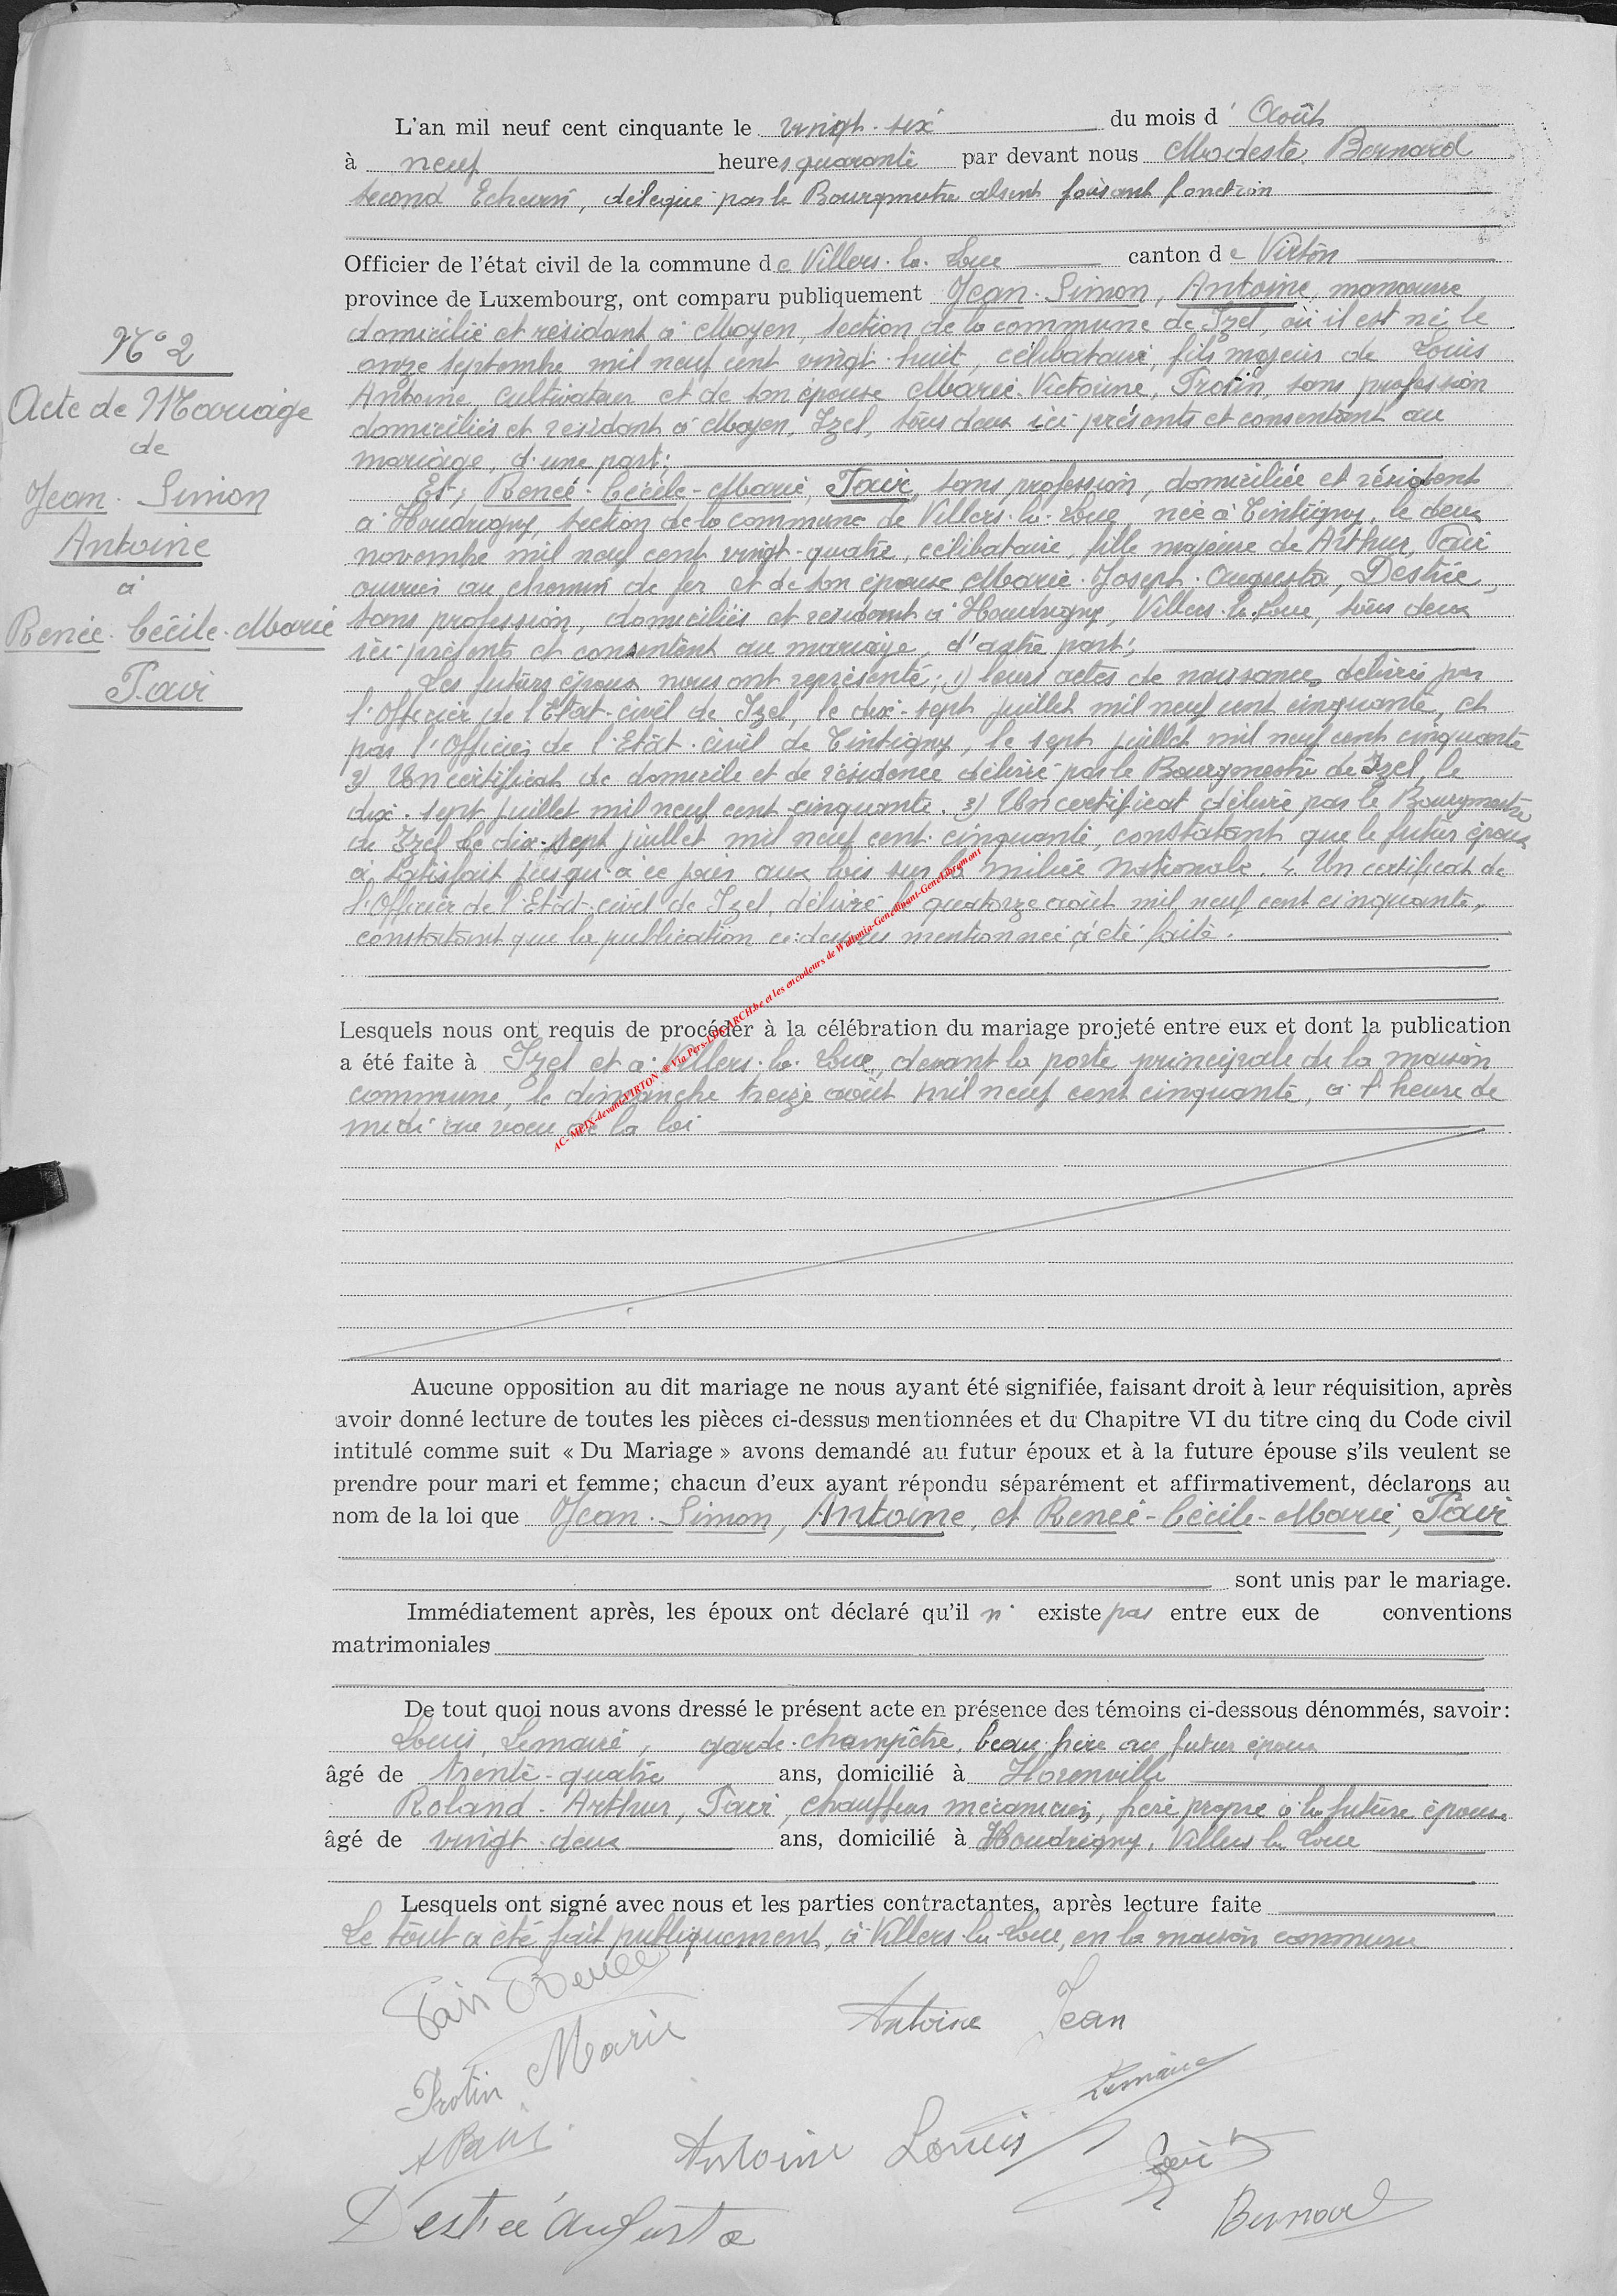 L'an mil neuf cent cinquante le vingt-six du mois d' Août
à neuf heures quarante par devant nous Modeste Bernard
second Echevin, délégué par le Bourgmestre absent faisant fonction
Officier de l'état civil de la commune de Villers-la-Loue canton de Virton
province de Luxembourg, ont comparu publiquement Jean-Simon, Antoine, manœuvre
domicilié et résidant à Moyen, section de la commune de Izel, où il est né le
onze septembre mil neuf cent vingt-huit, célibataire, fils majeur de Louis
Antoine, cultivateur et de son épouse Marie-Victorine, Protin, sans profession
domiciliés et résidant à Moyen, Izel, tous deux ici présents et consentant au
mariage, d'une part;
Et, Renée-Cécile-Marie, Pair, sans profession, domiciliée et résident
à Houdrigny, section de la commune de Villers-la-Loue née à Tintigny, le deux
novembre mil neuf cent vingt-quatre, célibataire, fille majeure de Arthur, Pair
ouvrier au chemin de fer et de son épouse Marie-Joseph-Augusta, Destrée,
sans profession, domiciliés et residant à Houdrigny, Villers-la-Loue, tous deux
ici présents et consentent au mariage, d'autre part;
Les futurs époux nous ont représenté; 1) leurs actes de naissance délivré par
l'Officier de l'Etat-civil de Izel, le dix-sept juillet mil neuf cent cinquante, et
par l'Officier de l'Etat-civil de Tintigny, le sept juillet mil neuf cent cinquante
2) Un certificat de domicile et de résidence délivré par le Bourgmestre de Izel, le
dix-sept juillet mil neuf cent cinquante. 3) Un certificat délivré par le Bourgmestre
de Izel le dix-sept juillet mil neuf cent cinquante, constatant que le futur époux
a satisfait jusqu'à ce jour aux lois sur la milice nationale. 4 Un certificat de
l'Officier de l'Etat-civil de Izel, délivré le quatorze août mil neuf cent cinquante,
constatant que la publication ci-dessus mentionnée a été faite.
AC- MEIX-devant-VIRTON - @ Via Pers-LUXARCH.be et les encodeurs de Wallonia-Genedinant-GeneLibramont
Lesquels nous ont requis de procéder à la célébration du mariage projeté entre eux et dont la publication
a été faite à Izel et à Villers-la-Loue, devant la porte principale de la maison
commune, le dimanche treize août mil neuf cent cinquante, à l'heure de
midi au vœu de la loi
Aucune opposition au dit mariage ne nous ayant été signifiée, faisant droit à leur réquisition, après
avoir donné lecture de toutes les pièces ci-dessus mentionnées et du Chapitre VI du titre cinq du Code civil
intitulé comme suit « Du Mariage » avons demandé au futur époux et à la future épouse s'ils veulent se
prendre pour mari et femme; chacun d'eux ayant répondu séparément et affirmativement, déclarons au
nom de la loi que Jean-Simon, Antoine, et Renée-Cécile-Marie, Pair
sont unis par le mariage.
Immédiatement après, les époux ont déclaré qu'il n' existe pas entre eux de conventions
matrimoniales
De tout quoi nous avons dressé le présent acte en présence des témoins ci-dessous dénommés, savoir:
Louis, Lemaire, garde-champêtre, beau-frère au futur époux
âgé de trente-quatre ans, domicilié à Horenville
Roland-Arthur, Pair, chauffeur mécanicien, frère propre à la future épouse
âgé de vingt-deux ans, domicilié à Houdrigny, Villers la Loue
Lesquels ont signé avec nous et les parties contractantes, après lecture faite
Le tout a été fait publiquement, à Villers-la-Loue, en la maison commune
Pair Renée
Antoine Jean
Protin Marie
Lemaire
A Pair
Antoine Louis
Pair
Destrée Augusta
Bernard
N° 2
Acte de Mariage
de
Jean-Simon
Antoine
à
Renée-Cécile-Marie
Pair